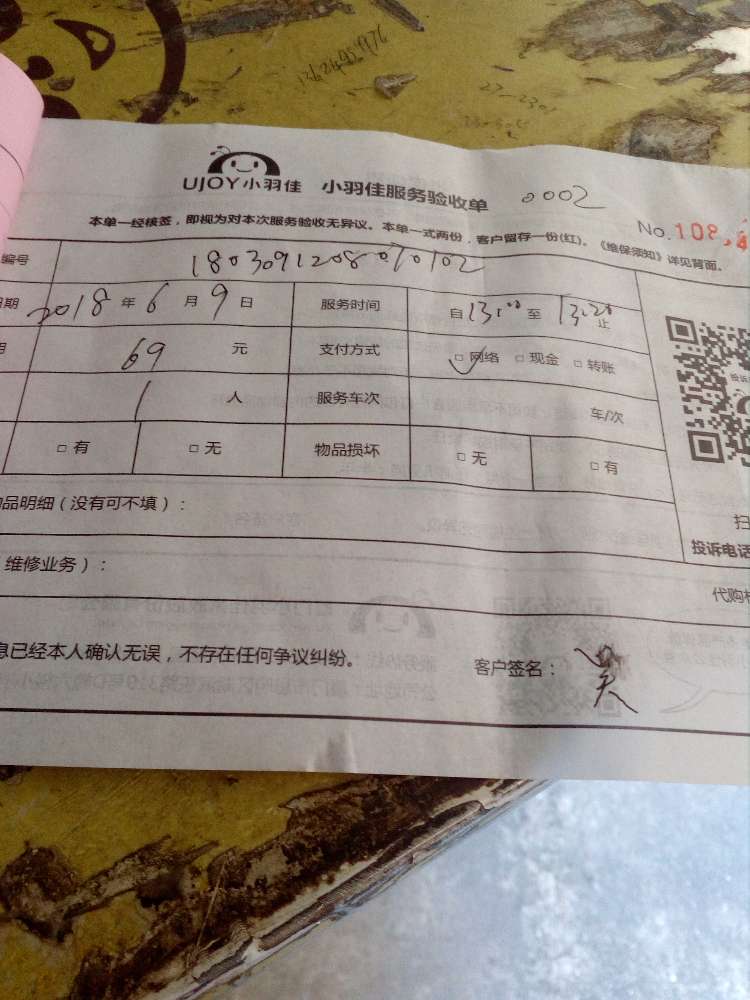 UJOY小羽佳 小羽佳服务验收单 0002
No.108
本单一经核签，即视为对本次服务验收无异议。本单一式两份，客户留存一份(红)。《维保须知》详见背面。
编号 1803091208070102
日期 2018 年 6 月 9 日 服务时间 自 13:00 至 13:20 止
69 元 支付方式 □网络 □现金 □转账
1 人 服务车次 车/次
□有 □无 物品损坏 □无 □有
品明细（没有可不填）：
扫
投诉电话
维修业务）：
代购
息已经本人确认无误，不存在任何争议纠纷。 客户签名：